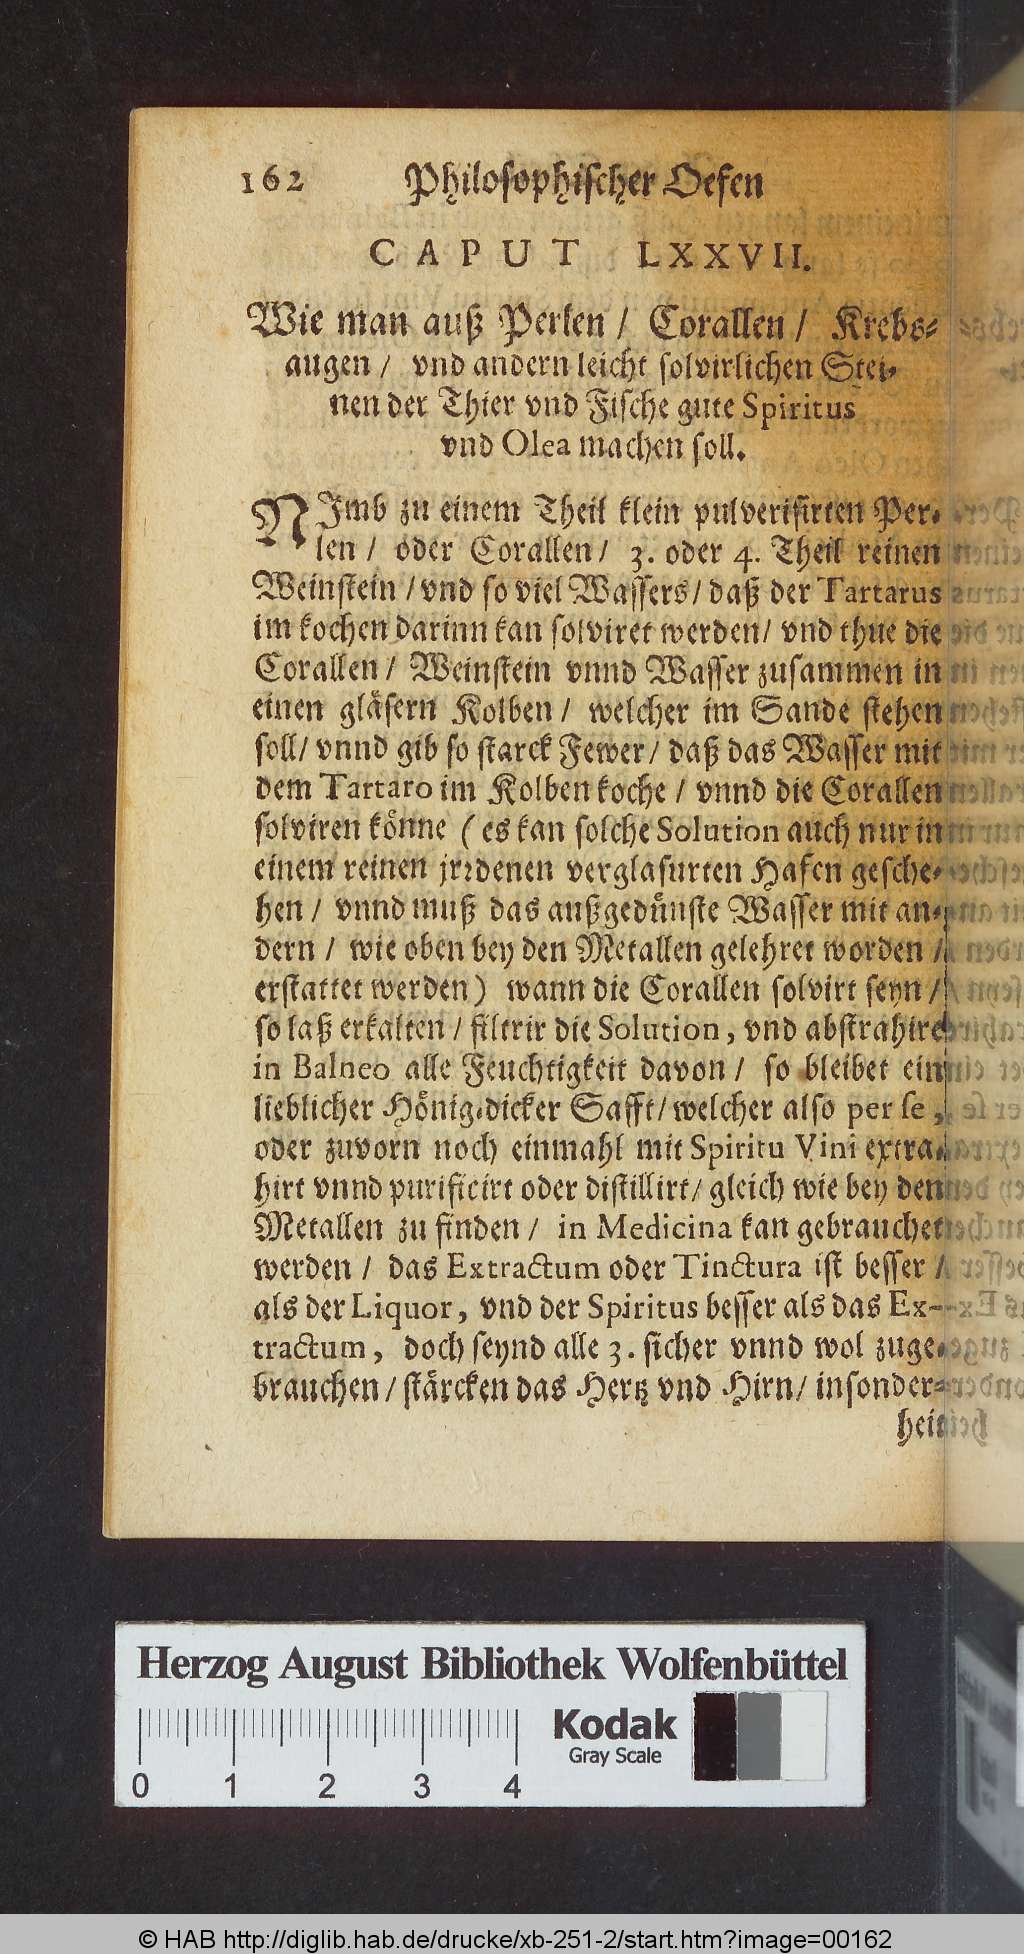 162 Philosophischer Oefen
CAPUT LXXVII.
Wie man auß Perlen / Corallen / Krebs-
augen / vnd andern leicht solvirlichen Stei-
nen der Thier vnd Fische gute Spiritus
vnd Olea machen soll.
NJmb zu einem Theil klein pulverisirten Per-
len / oder Corallen / 3. oder 4. Theil reinen
Weinstein / vnd so viel Wassers / daß der Tartarus
im kochen darinn kan solviret werden / vnd thue die
Corallen / Weinstein vnnd Wasser zusammen in
einen gläsern Kolben / welcher im Sande stehen
soll / vnnd gib so starck Fewer / daß das Wasser mit
dem Tartaro im Kolben koche / vnnd die Corallen
solviren könne ( es kan solche Solution auch nur in
einem reinen jrrdenen verglasurten Hafen gesche-
hen / vnnd muß das außgedünste Wasser mit an-
dern / wie oben bey den Metallen gelehret worden /
erstattet werden ) wann die Corallen solvirt seyn /
so laß erkalten / filtrir die Solution, vnd abstrahire
in Balneo alle Feuchtigkeit davon / so bleibet ein
lieblicher Hönig-dicker Safft / welcher also per se,
oder zuvorn noch einmahl mit Spiritu Vini extra-
hirt vnnd purificirt oder distillirt / gleich wie bey den
Metallen zu finden / in Medicina kan gebrauchet
werden / das Extractum oder Tinctura ist besser /
als der Liquor, vnd der Spiritus besser als das Ex-
tractum, doch seynd alle 3. sicher vnnd wol zuge-
brauchen / stärcken das Hertz vnd Hirn / insonder-
heit
Herzog August Bibliothek Wolfenbüttel
Kodak
Gray Scale
0 1 2 3 4
© HAB http://diglib.hab.de/drucke/xb-251-2/start.htm?image=00162